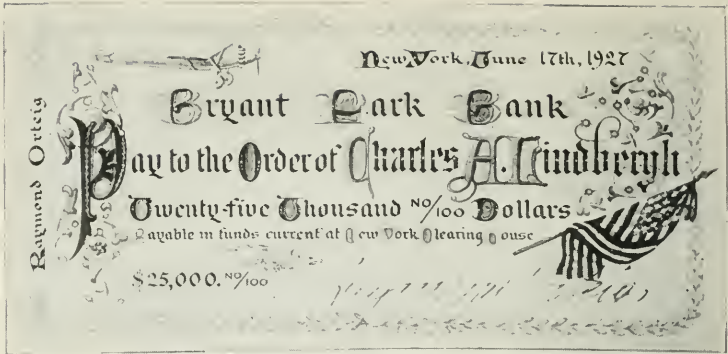 New York, June 17th, 1927
Bryant Park Bank
Pay to the Order of Charles A. Lindbergh
Twenty-five Thousand No/100 Dollars
Payable in funds current at New York Clearing House
$25,000. No/100
Raymond Orteig